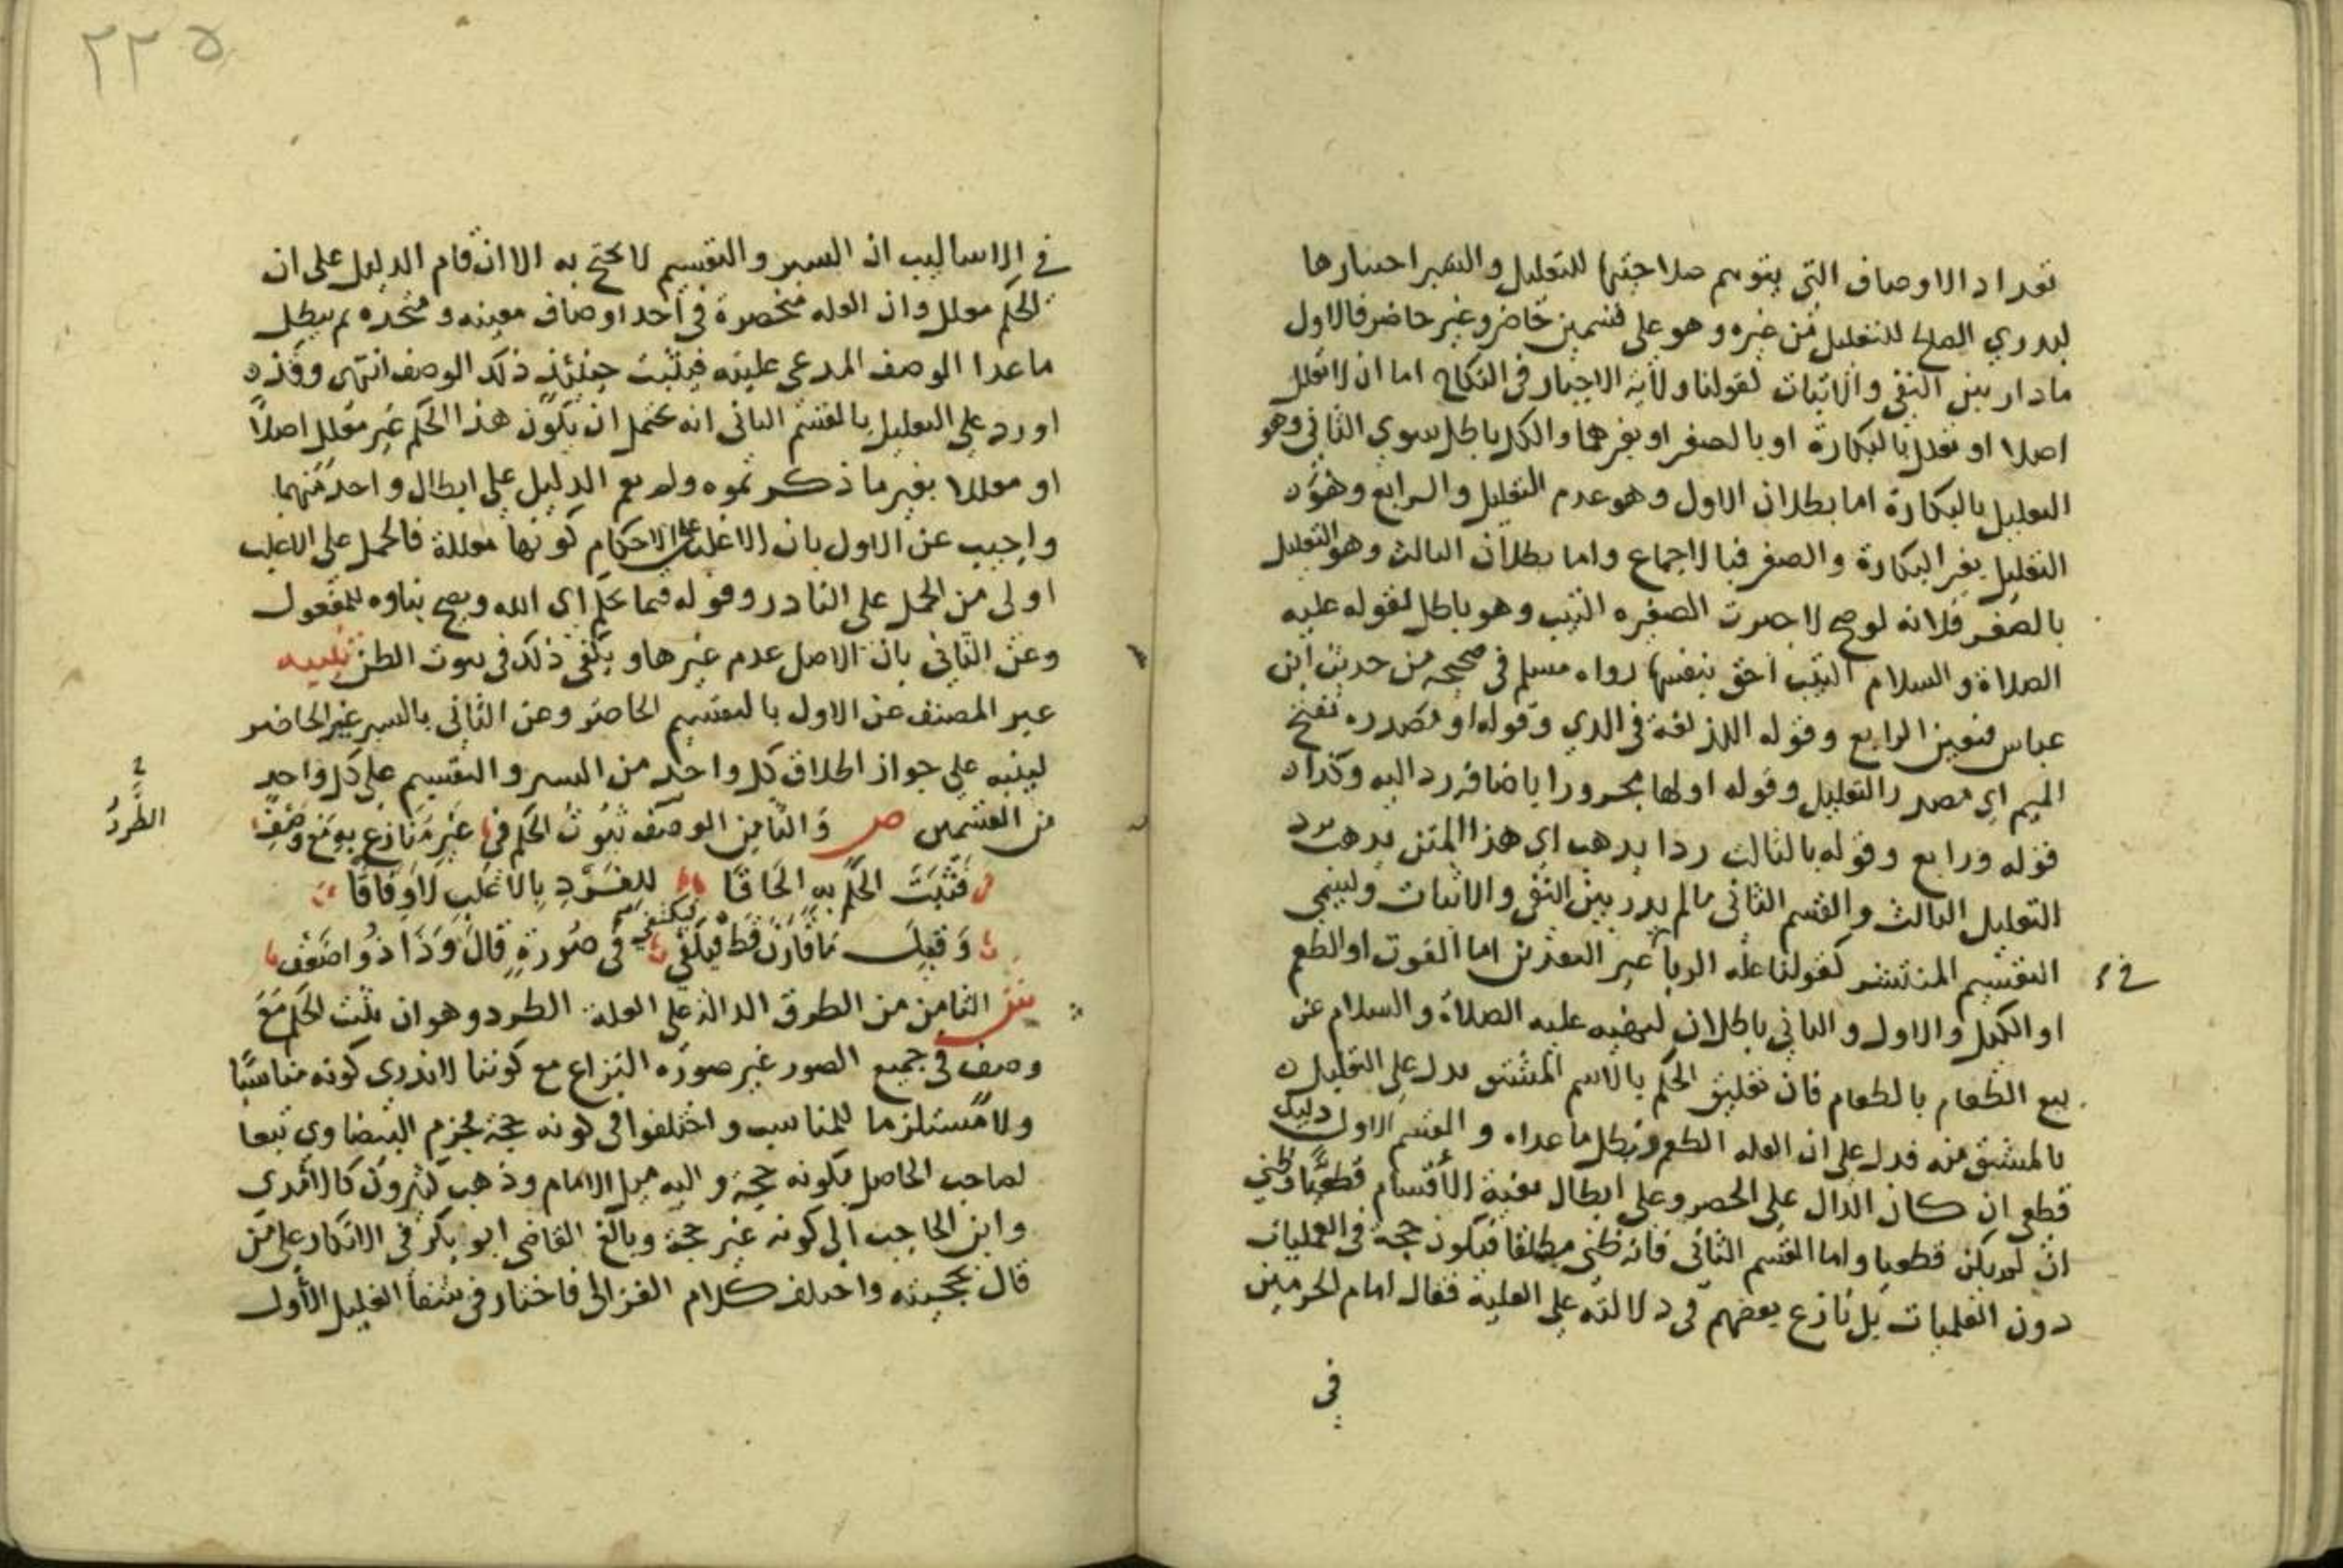 تعداد الاوصاف التي يتوهم صلاحيتها للتعليل والسبر احتبارها
ليدري الصالح للتعليل من غيره وهو على قسمين حاضر وغير حاضر فالاول
ما دار بين النفي والاثبات كقولنا ولاية الاجبار في النكاح اما ان لا تعلل
اصلا او تعلل بالبكارة او بالصغر او بغيرهما والكل باطل سوي الثاني وهو
التعليل بالبكارة اما بطلان الاول وهو عدم التعليل والرابع وهو
التعليل بغير البكارة والصغر فبالاجماع واما بطلان الثالث وهو التعليل
بالصغر فلانه لو صح لاجبرت الصغيره الثيب وهو باطل لقوله عليه
الصلاة والسلام الثيب احق بنفسها رواه مسلم في صحيحه من حديث ابن
عباس فتعين الرابع وقوله اللذ لغة في الذي وقوله او مصدره بفتح
الميم اي مصدر التعليل وقوله اولها مجرورا باضافة رد اليه وكذا
قوله ورابع وقوله بالثالث ردا يذهب اي هذا المتن يذهب برد
التعليل الثالث والقسم الثاني ما لم يدر بين النفي والاثبات ويسمي
التقسيم المنتشر كقولنا علة الربا غير النقدين اما القوت او الطعم
في
او الكيل والاول والثاني باطلان لنهيه عليه الصلاة والسلام عن
بيع الطعام بالطعام فان تعليق الحكم بالاسم المشتق يدل على التعليل
بالمشتق منه فدل على ان العله الطعم وبطل ما عداه والقسم الاول دليل
قطعي ان كان الدال على الحصر وعلى ابطال بقية الاقسام قطعيا وظني
ان لم يكن قطعيا واما القسم الثاني فانه ظني مطلقا فيكون حجة في العمليات
دون العلميات بل نازع بعضهم في دلالته على العلية فقال امام الحرمين
في
٢٢٥
في الاساليب ان السبر والتقسيم لا يحتج به الا ان قام الدليل على ان
الحكم معلل وان العله منحصرة في احد اوصاف معينه ومتحده ثم يبطل
ما عدا الوصف المدعى عليته فيثبت حينئذ ذلك الوصف انتهى وقد
اورد على التعليل بالقسم الثاني انه يحتمل ان يكون هذا الحكم غير معلل اصلا
او معللا بغير ما ذكرتموه ولم يقم الدليل على ابطال واحد منهما
واجيب عن الاول بان الاغلب على الاحكام كونها معللة فالحمل على الاغلب
اولى من الحمل على النادر وقوله فيما حكم اي الله ويصح بناوه للمفعول
وعن الثاني بان الاصل عدم غيرها ويكفي ذلك في ثبوت الظن تنبيه
عبر المصنف عن الاول بالتقسيم الحاصر وعن الثاني بالسبر غير الحاضر
لينبه على جواز اطلاق كل واحد من السبر والتقسيم على كل واحد
من القسمين ص والثامن الوصف ثبوت الحكم في غير منازع به مع وصف
الطرد
فثبت الحكم به الحاقا للفرد بالاغلب لا وفاقا
وقيل ما قارن قط فيكفي في صورة قال وذا ذو اضعف
ليكتفى
ش الثامن من الطرق الدالة على العلة الطرد وهو ان يثبت الحكم مع
وصف في جميع الصور غير صورة النزاع مع كوننا لا ندري كونه مناسبا
ولا مستلزما للمناسب واختلفوا في كونه حجة فجزم البيضاوي تبعا
لصاحب الحاصل بكونه حجة واليه ميل الامام وذهب كثيرون كالآمدي
وابن الحاجب الى كونه غير حجة وبالغ القاضي ابو بكر في الانكار على من
قال بحجيته واختلف كلام الغزالي فاختار في شفا الغليل الأول